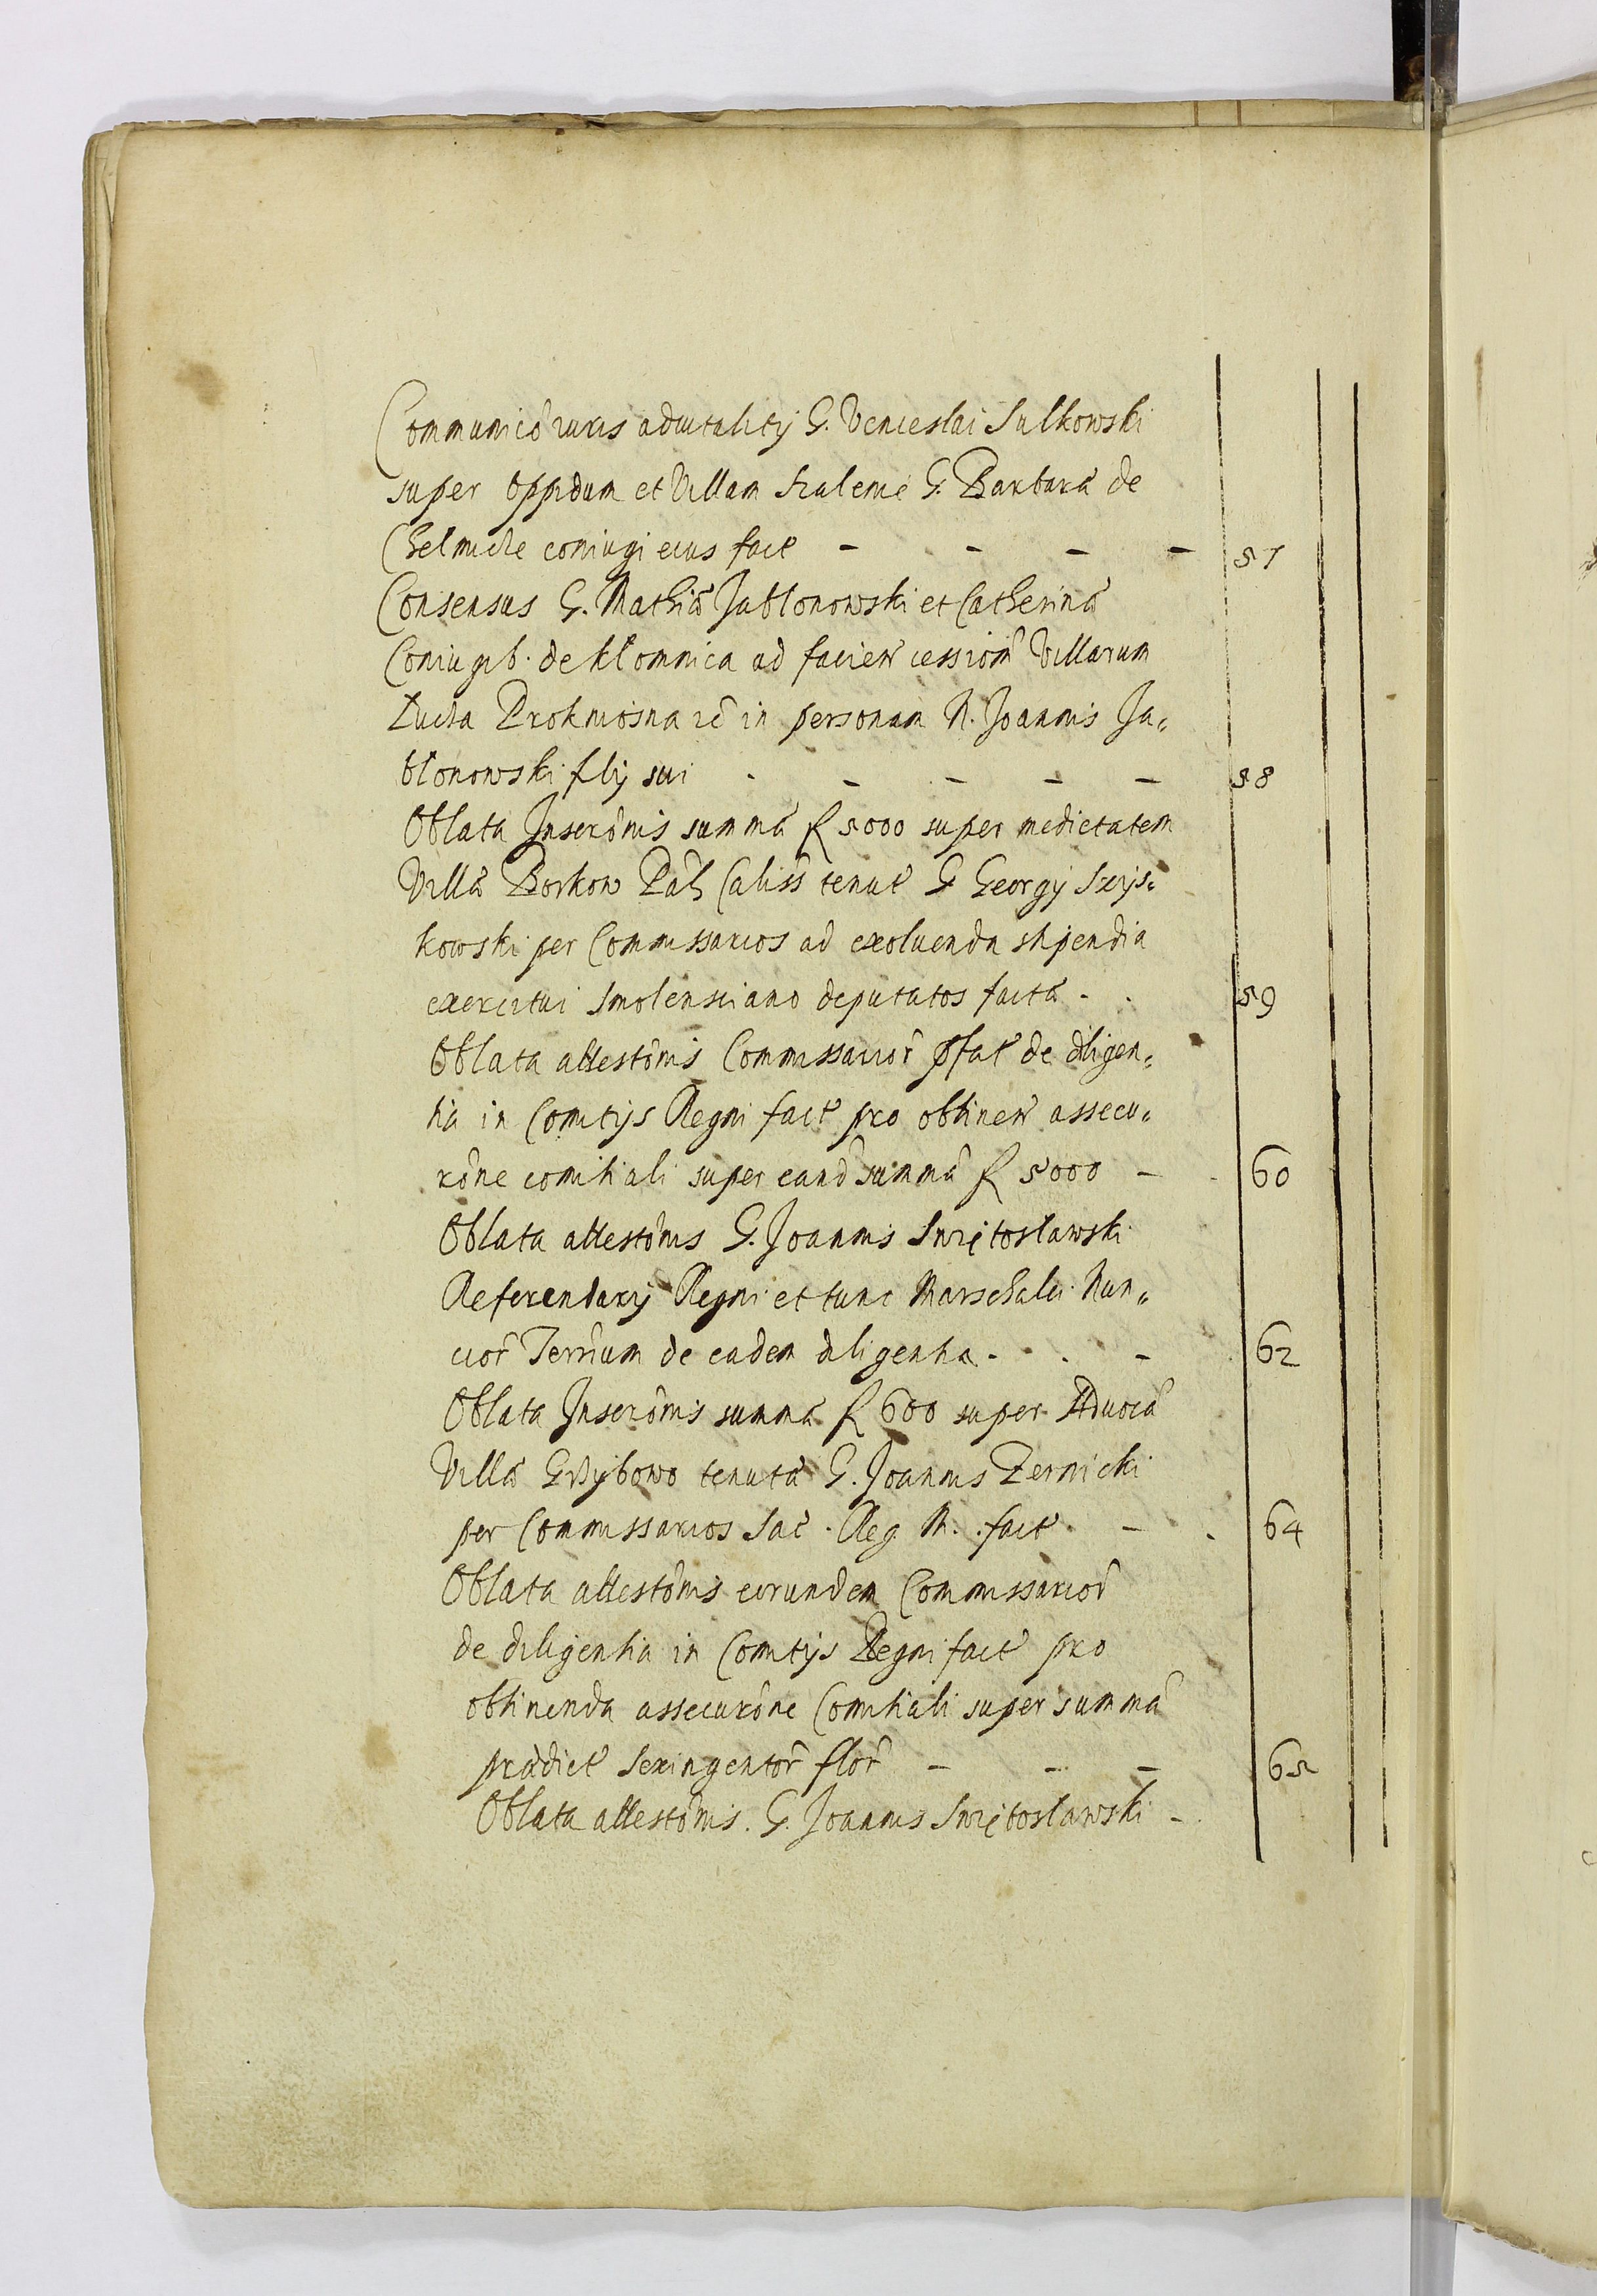 Communicõ iuris aduitalitij G. Venceslai Sulkowski
super Oppidum et Villam G. Barbaræ de
coniugi eius fact - - - - 57
Consensus G. Mathiæ Jabłonowski et Catherinæ
Coniugib. de Kłomnica ad facień cessiom̃ Villarum
in personam N. Joannis Ja-
błonowski filij sui - - - - - 58
Oblata Inscrõnis summæ fl 5000 super medietatem
Villæ Borkow Pał Caliss̃ tenut̃ G Georgij
kowski per Commissarios ad exoluenda stipendia
exercitui Smolensciano deputatos factæ - . 59
Oblata attestõnis Commissarior̃ pfat̃ de diligen-
tia in Comitijs Regni fact̃ pro obtineñ assecu-
rõne comitiali super eand̃ summã fl 5000 - 60
Oblata attestõnis G. Joannis Swiętosławski
Referendarij Regni et tunc Marschalci Nun-
cior̃ Terr̃rum de eadem diligentia - . . - 62
Oblata Inscrõnis summæ fl 600 super Aduocã
Villæ Grzybowo tenutæ G. Joannis Zernicki
per Commissarios Sac̃. Reg. M. fact̃ - . 64
Oblata attestõnis eorundem Commissarior̃
de diligentia in Comitijs Regni fact̃ pro
obtinenda assecurõne Comitiali super summã
prædict̃ sexingentor̃ flor̃ - - - 65
Oblata attestõnis. G. Joannis Swiętosławski -